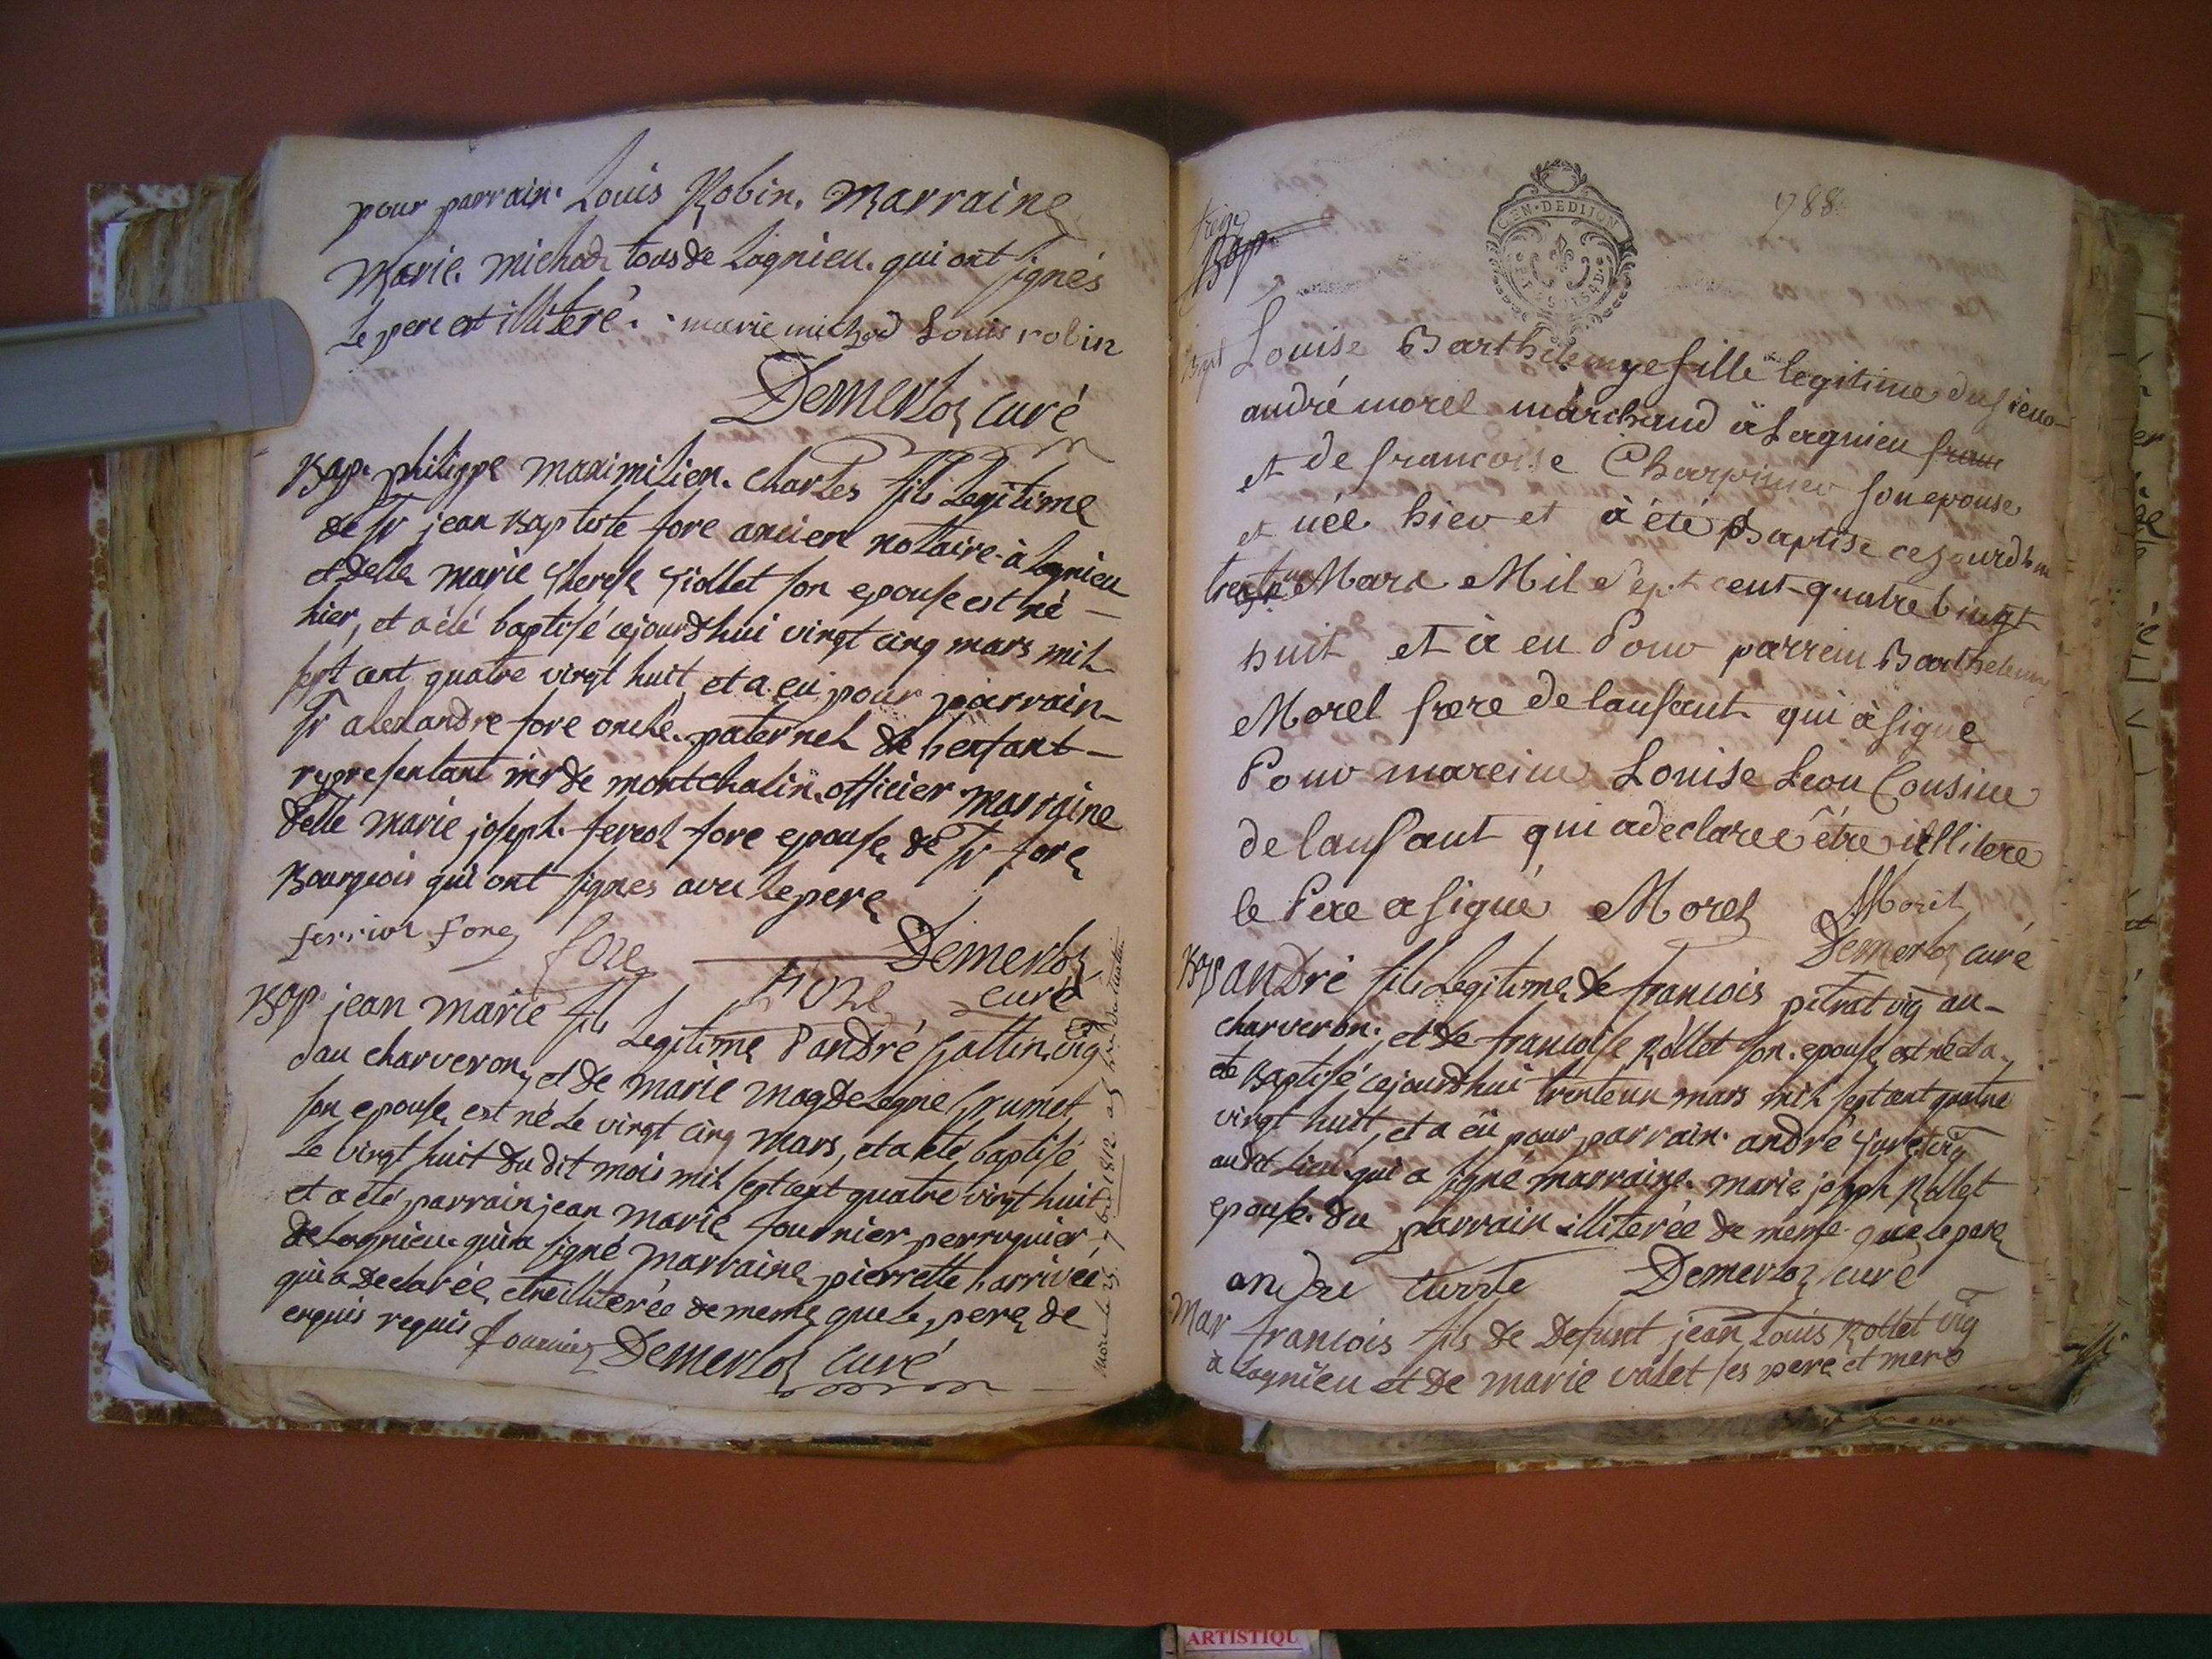 pour parrain. Louis Robin. Marraine
Marie. michod tous de Lagnieu. qui ont signés
Le pere est illiteré. marie michod Louis robin
Demerloz curé
Bap. philippe maximilien. charles fils Legitime
de Sr jean Baptiste fore ancien notaire à Lagnieu
et delle marie therese fiollet son epouse est né
hier, et a été baptisé cejourdhui vingt cinq mars mil
sept cent quatre vingt huit et a eu pour parrain
Sr alexandre fore oncle paternel de l'enfant
representant mr de montchalin officier marraine
delle marie joseph. ferriol fore epouse de Sr fore
Bourgeois qui ont signes avec le pere
ferriol fore fore Demerloz
fore curé
Bap. jean marie fils Legitime d'andré gallin vig
dau charveron, et de marie magdeleine grumet
son epouse est né Le vingt cinq mars, et a été baptisé
Le vingt huit du dit mois mil sept cent quatre vingt huit
et a été parrain jean marie fournier perruquier
de Lagnieu qui a signé marraine pierrette larrivée
qui a declarée etre illiterée de meme que le pere de
enquis requis fournier Demerloz curé
Mort le 25. 7bre 1812.
788
GEN. DE DIJON
Bap
Bapt Louise Barthelemye fille legitime du sieur
andré morel marchand à Lagnieu fran
et de francoise Charpinee son epouse
et née hier et à été Baptise cejourdhui
trente Mars Mil Sept cent quatre vingt
huit et à eu Pour parrein Barthelemy
Morel frere de lanfant qui à signe
Pour mareine Louise Leon Cousine
de lanfant qui a declaree être illitere
le Pere a signé Morel Morel
Demerloz curé
Bap andré fils Legitime de francois pitrat vig au
charveron. et de francoise Rollet son epouse est né et a
été Baptisé, cejourdhui trente un mars mil sept cent quatre
vingt huit, et a eu pour parrain. andré vig
au dit Lieu qui a signé marraine. marie joseph Rollet
epouse du parrain illiterée de meme que le pere
andre Demerloz curé
Mar francois fils de defunt jean Louis Rollet vig
à Lagnieu et de marie valet ses pere et mere
ARTISTIQU